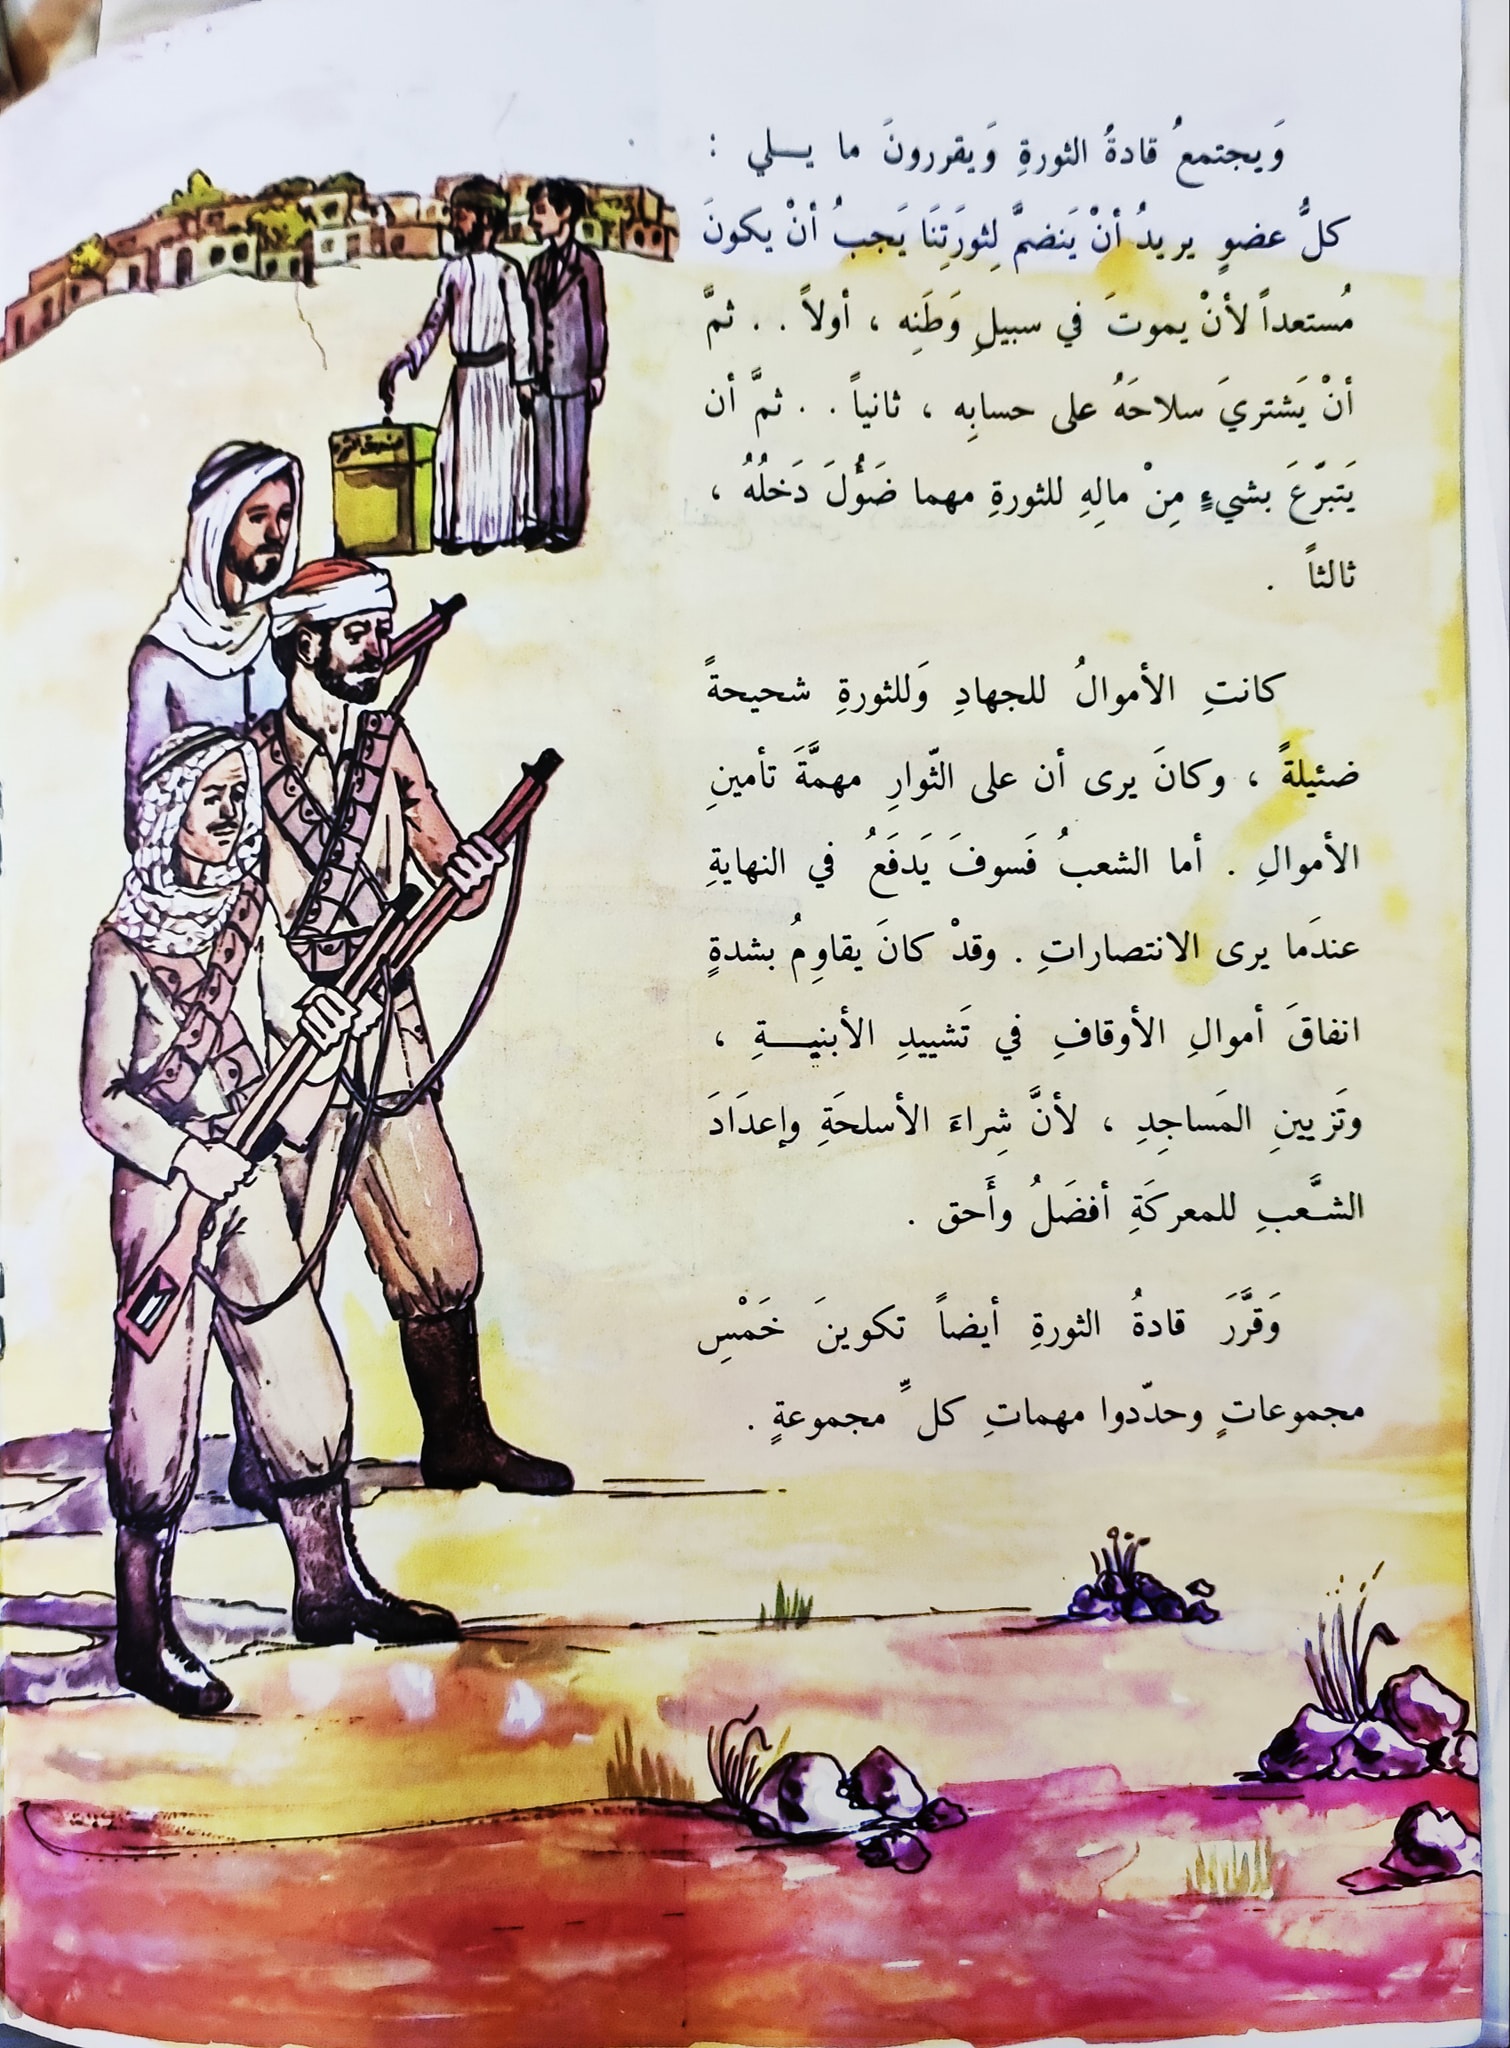 وَيجتمعُ قادةُ الثورةِ وَيقررونَ ما يـلي :
كلُّ عضوٍ يريدُ أنْ يَنضمَّ لِثورَتِنَا يَجبُ أنْ يكونَ
مُستعداً لأنْ يموتَ في سبيلِ وَطَنِه ، أولاً . . ثمَّ
أنْ يَشتريَ سلاحَهُ على حسابِه ، ثانياً . . ثمَّ أن
يَتبرّعَ بشيءٍ مِنْ مالِهِ للثورةِ مهما ضَؤُلَ دَخلُهُ ،
ثالثاً .
كانتِ الأموالُ للجهادِ وَللثورةِ شحيحةً
ضئيلةً ، وكانَ يرى أن على الثّوارِ مهمَّةَ تأمينِ
الأموالِ . أما الشعبُ فَسوفَ يَدفَعُ في النهايةِ
عندَما يرى الانتصاراتِ . وقدْ كانَ يقاوِمُ بشدةٍ
انفاقَ أموالِ الأوقافِ في تَشييدِ الأبنيـةِ ،
وتَزيينِ المَساجِدِ ، لأنَّ شِراءَ الأسلحَةِ وإعدَادَ
الشَّعبِ للمعركَةِ أفضَلُ وأَحق .
وَقرَّرَ قادةُ الثورةِ أيضاً تكوينَ خَمْسِ
مجموعاتٍ وحدّدوا مهماتِ كلِّ مجموعةٍ .